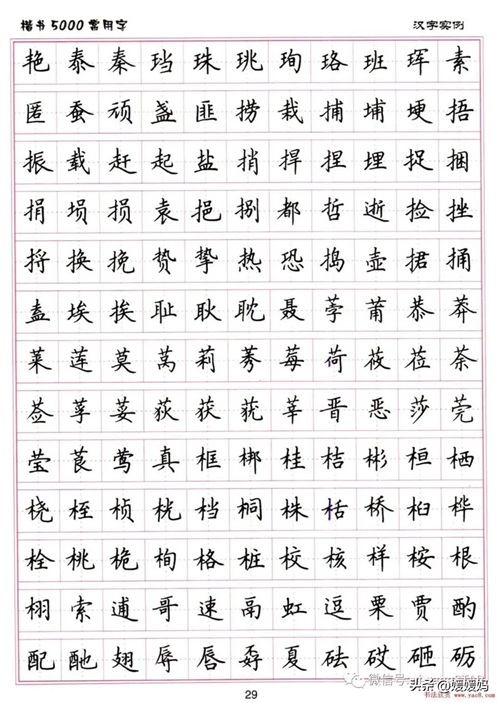 楷书5000常用字 汉字实例
艳 泰 秦 珰 珠 珧 珣 珞 班 珲 素
匿 蚕 顽 盏 匪 捞 栽 捕 埔 埂 捂
振 载 赶 起 盐 捎 捍 捏 埋 捉 捆
捐 埙 损 袁 挹 捌 都 哲 逝 捡 挫
捋 换 挽 贽 挚 热 恐 捣 壶 捃 捅
盍 埃 挨 耻 耿 耽 聂 荸 莆 恭 莽
莱 莲 莫 莴 莉 莠 莓 荷 莜 莅 荼
莶 莩 荽 荻 获 莸 莘 晋 恶 莎 莞
莹 莨 莺 真 框 梆 桂 桔 彬 桓 栖
桡 桎 桢 桄 档 桐 株 栝 桥 桕 桦
栓 桃 桅 栒 格 桩 校 核 样 桉 根
栩 索 逋 哥 速 鬲 虹 逗 栗 贾 酌
配 酏 翅 辱 唇 孬 夏 砝 砹 砸 砺
29
头条 @媛媛妈
书法欣赏 www.yac8.com